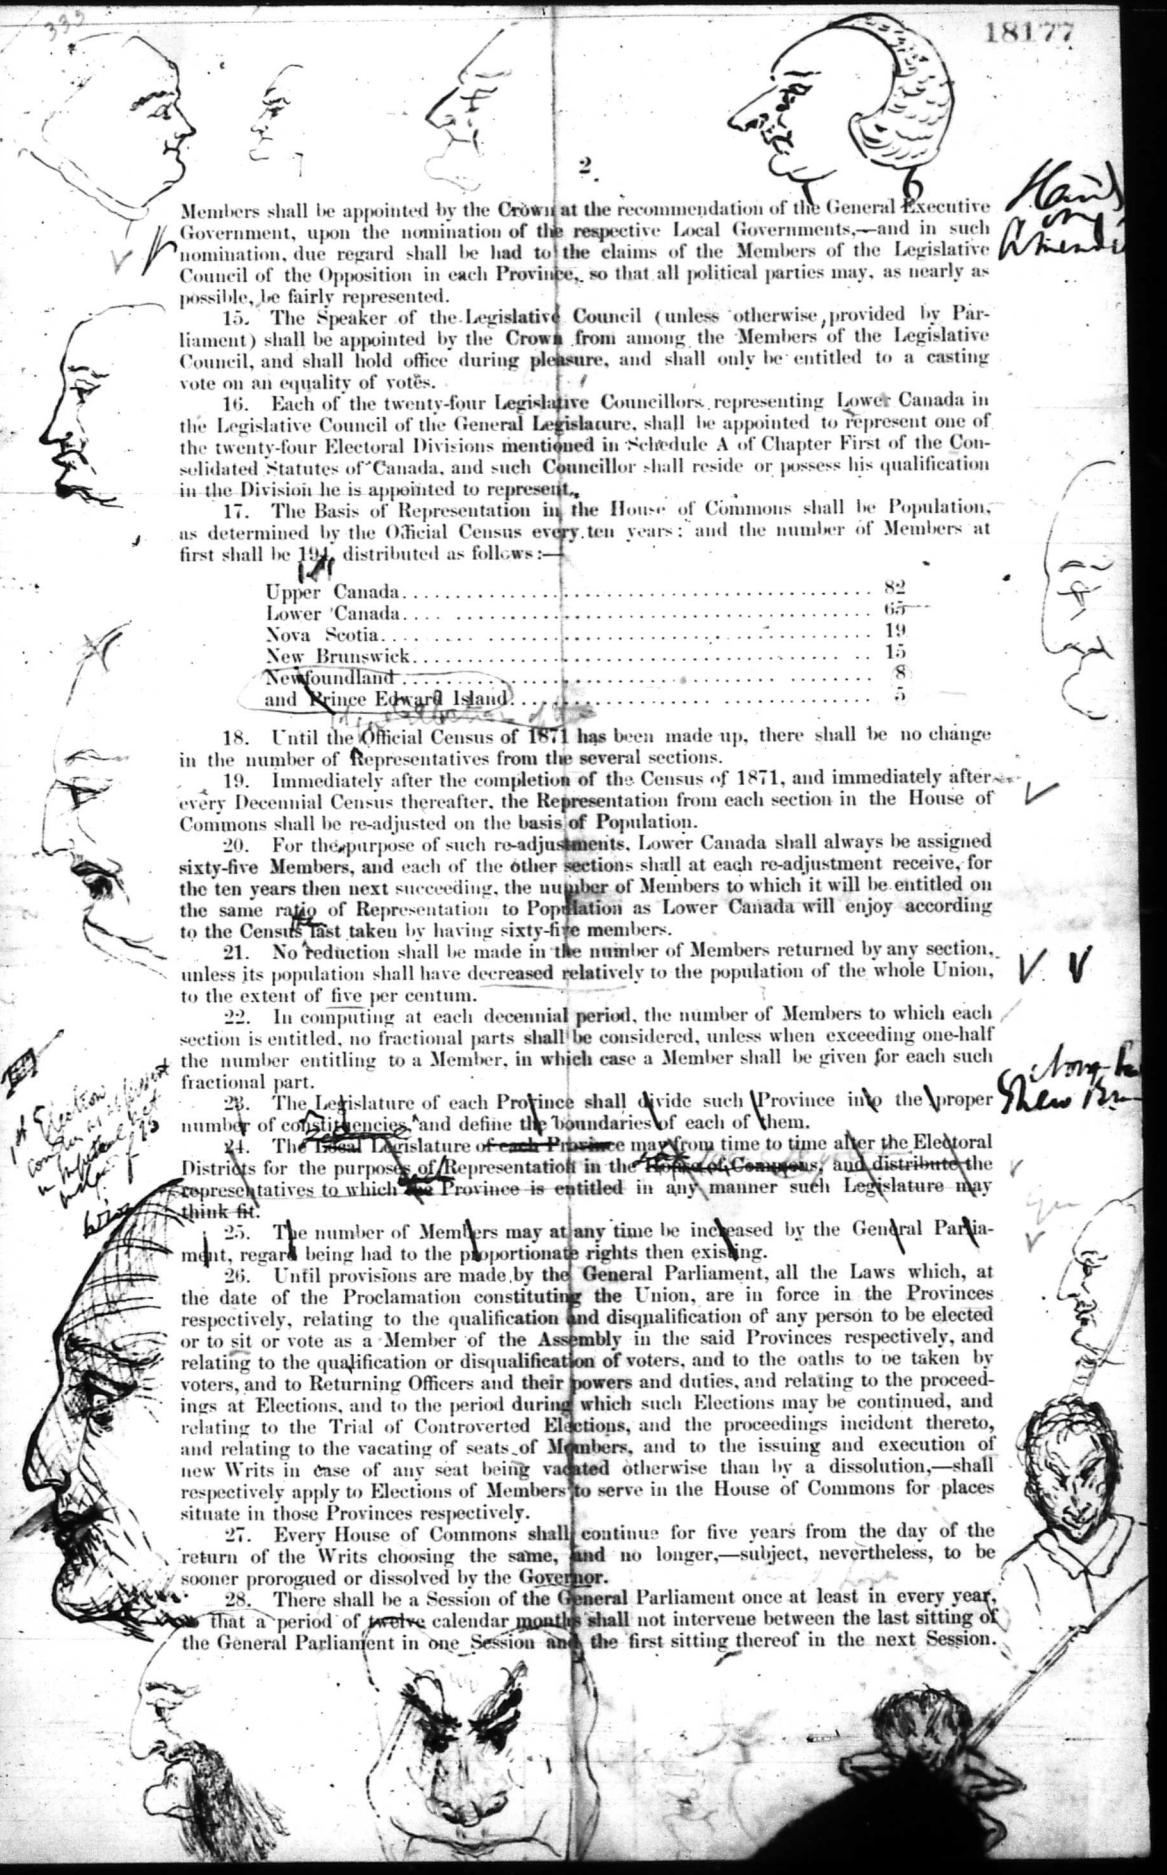 333
18177
2.
Members shall be appointed by the Crown at the recommendation of the General Executive
Government, upon the nomination of the respective Local Governments,—and in such
nomination, due regard shall be had to the claims of the Members of the Legislative
Council of the Opposition in each Province, so that all political parties may, as nearly as
possible, be fairly represented.
15. The Speaker of the Legislative Council (unless otherwise provided by Par-
liament) shall be appointed by the Crown from among the Members of the Legislative
Council, and shall hold office during pleasure, and shall only be entitled to a casting
vote on an equality of votes.
16. Each of the twenty-four Legislative Councillors representing Lower Canada in
the Legislative Council of the General Legislature, shall be appointed to represent one of
the twenty-four Electoral Divisions mentioned in Schedule A of Chapter First of the Con-
solidated Statutes of Canada, and such Councillor shall reside or possess his qualification
in the Division he is appointed to represent.
17. The Basis of Representation in the House of Commons shall be Population,
as determined by the Official Census every ten years; and the number of Members at
first shall be 194, distributed as follows:—
Upper Canada........ 82
Lower Canada........ 65
Nova Scotia........ 19
New Brunswick........ 15
Newfoundland........ 8
and Prince Edward Island........ 5
18. Until the Official Census of 1871 has been made up, there shall be no change
in the number of Representatives from the several sections.
19. Immediately after the completion of the Census of 1871, and immediately after
every Decennial Census thereafter, the Representation from each section in the House of
Commons shall be re-adjusted on the basis of Population.
20. For the purpose of such re-adjustments, Lower Canada shall always be assigned
sixty-five Members, and each of the other sections shall at each re-adjustment receive, for
the ten years then next succeeding, the number of Members to which it will be entitled on
the same ratio of Representation to Population as Lower Canada will enjoy according
to the Census last taken by having sixty-five members.
21. No reduction shall be made in the number of Members returned by any section,
unless its population shall have decreased relatively to the population of the whole Union,
to the extent of five per centum.
22. In computing at each decennial period, the number of Members to which each
section is entitled, no fractional parts shall be considered, unless when exceeding one-half
the number entitling to a Member, in which case a Member shall be given for each such
fractional part.
23. The Legislature of each Province shall divide such Province into the proper
number of constituencies, and define the boundaries of each of them.
24. The Local Legislature of each Province may from time to time alter the Electoral
Districts for the purposes of Representation in the House of Commons, and distribute the
representatives to which the Province is entitled in any manner such Legislature may
think fit.
25. The number of Members may at any time be increased by the General Parlia-
ment, regard being had to the proportionate rights then existing.
26. Until provisions are made by the General Parliament, all the Laws which, at
the date of the Proclamation constituting the Union, are in force in the Provinces
respectively, relating to the qualification and disqualification of any person to be elected
or to sit or vote as a Member of the Assembly in the said Provinces respectively, and
relating to the qualification or disqualification of voters, and to the oaths to be taken by
voters, and to Returning Officers and their powers and duties, and relating to the proceed-
ings at Elections, and to the period during which such Elections may be continued, and
relating to the Trial of Controverted Elections, and the proceedings incident thereto,
and relating to the vacating of seats of Members, and to the issuing and execution of
new Writs in case of any seat being vacated otherwise than by a dissolution,—shall
respectively apply to Elections of Members to serve in the House of Commons for places
situate in those Provinces respectively.
27. Every House of Commons shall continue for five years from the day of the
return of the Writs choosing the same, and no longer,—subject, nevertheless, to be
sooner prorogued or dissolved by the Governor.
28. There shall be a Session of the General Parliament once at least in every year,
so that a period of twelve calendar months shall not intervene between the last sitting of
the General Parliament in one Session and the first sitting thereof in the next Session.